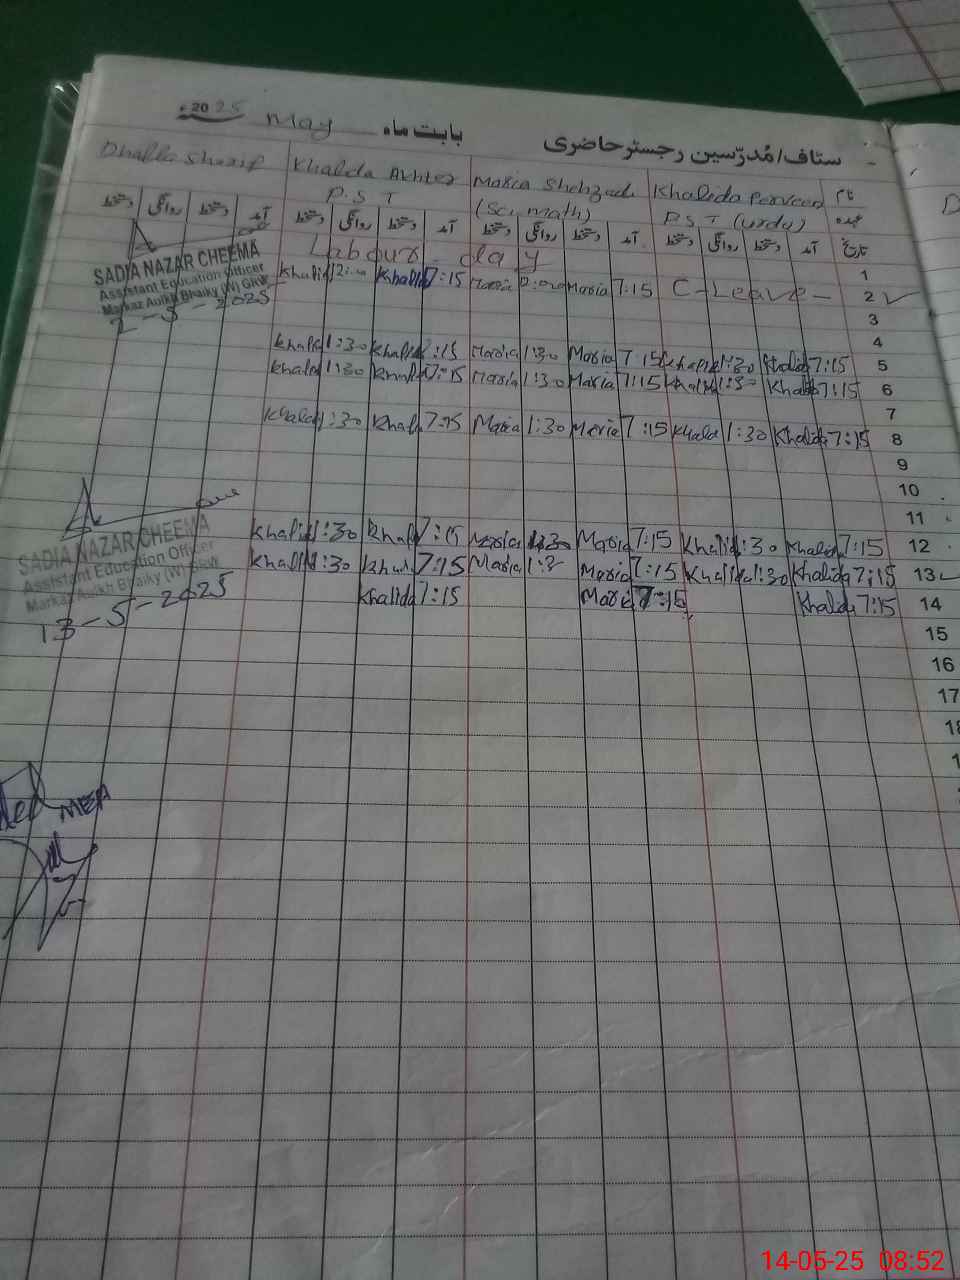 ستاف/مُدرّسین رجسٹر حاضری بابت ماہ May 2025ء
نام Khalida Perveen Maria Shehzadi Khalida Akhter
عہدہ P.S.T (urdu) (Sci, math) P.S.T
تاریخ آمد دستخط روانگی دستخط آمد دستخط روانگی دستخط آمد دستخط روانگی دستخط آمد دستخط روانگی دستخط
1 Labour day
2 C-Leave- 7:15 Maria Maria 7:15 Khalid 12:00 Khalid
3
4
5 7:15 Khalid 1:30 Khalid 7:15 Maria 1:30 Maria 7:15 Khalid 1:30 Khalid
6 7:15 Khalid 1:30 Khalid 7:15 Maria 1:30 Maria 7:15 Khalid 1:30 Khalid
7
8 7:15 Khalida 1:30 Khalid 7:15 Maria 1:30 Maria 7:15 Khalid 1:30 Khalid
9
10
11
12 7:15 Khalida 1:30 Khalid 7:15 Maria 1:30 Maria 7:15 Khalid 1:30 Khalid
13 7:15 Khalida 1:30 Khalida 7:15 Maria Maria 7:15 Khalid 1:30 Khalid
14 7:15 Khalida 7:15 Maria 7:15 Khalida
15
16
17
SADIA NAZAR CHEEMA
Assistant Education Officer
Markaz Aulkh Bhaiky (W) GRW
2-5-2025
SADIA NAZAR CHEEMA
Assistant Education Officer
Markaz Aulkh Bhaiky (W) GRW
13-5-2025
MEA
14-05-25 08:52